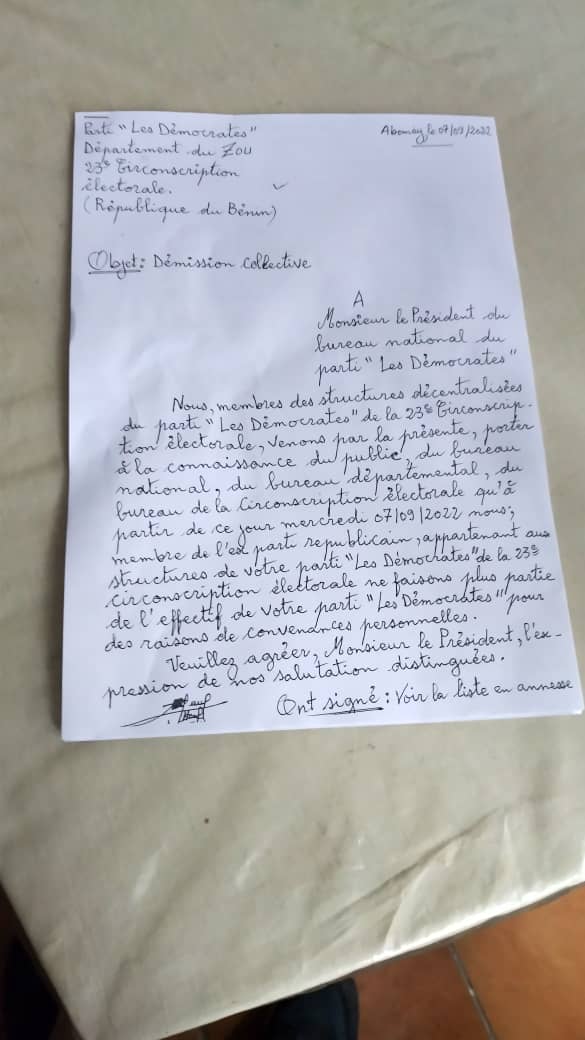 Parti "Les Démocrates"
Abomey le 07/09/2022
Département du Zou
23è Circonscription
électorale.
(République du Bénin)
Objet: Démission collective
A
Monsieur le Président du
bureau national du
parti "Les Démocrates"
Nous, membres des structures décentralisées
du parti "Les Démocrates" de la 23è Circonscrip-
tion électorale, venons par la présente, porter
à la connaissance du public, du bureau
national, du bureau départemental, du
bureau de la Circonscription électorale qu'à
partir de ce jour mercredi 07/09/2022 nous;
membre de l'ex parti republicain, appartenant aux
structures de votre parti "Les Démocrates" de la 23è
circonscription électorale ne faisons plus partie
de l'effectif de votre parti "Les Démocrates" pour
des raisons de convenances personnelles.
Veuillez agréer, Monsieur le Président, l'ex-
pression de nos salutation distinguées.
Ont signé: Voir la liste en annesse